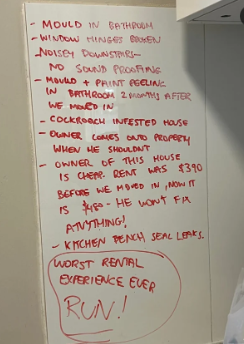 - MOULD IN BATHROOM
- WINDOW HINGES BROKEN
- NOISEY DOWNSTAIRS -
NO SOUND PROOFING
- MOULD + PAINT PEELING
IN BATHROOM 2 MONTHS AFTER
WE MOVED IN
- COCKROACH INFESTED HOUSE
- OWNER COMES ONTO PROPERTY
WHEN HE SHOULDN'T
- OWNER OF THIS HOUSE
IS CHEAP. RENT WAS $390
BEFORE WE MOVED IN, NOW IT
IS $480 - HE WON'T FIX
ANYTHING!
- KITCHEN BENCH SEAL LEAKS.
WORST RENTAL
EXPERIENCE EVER
RUN!